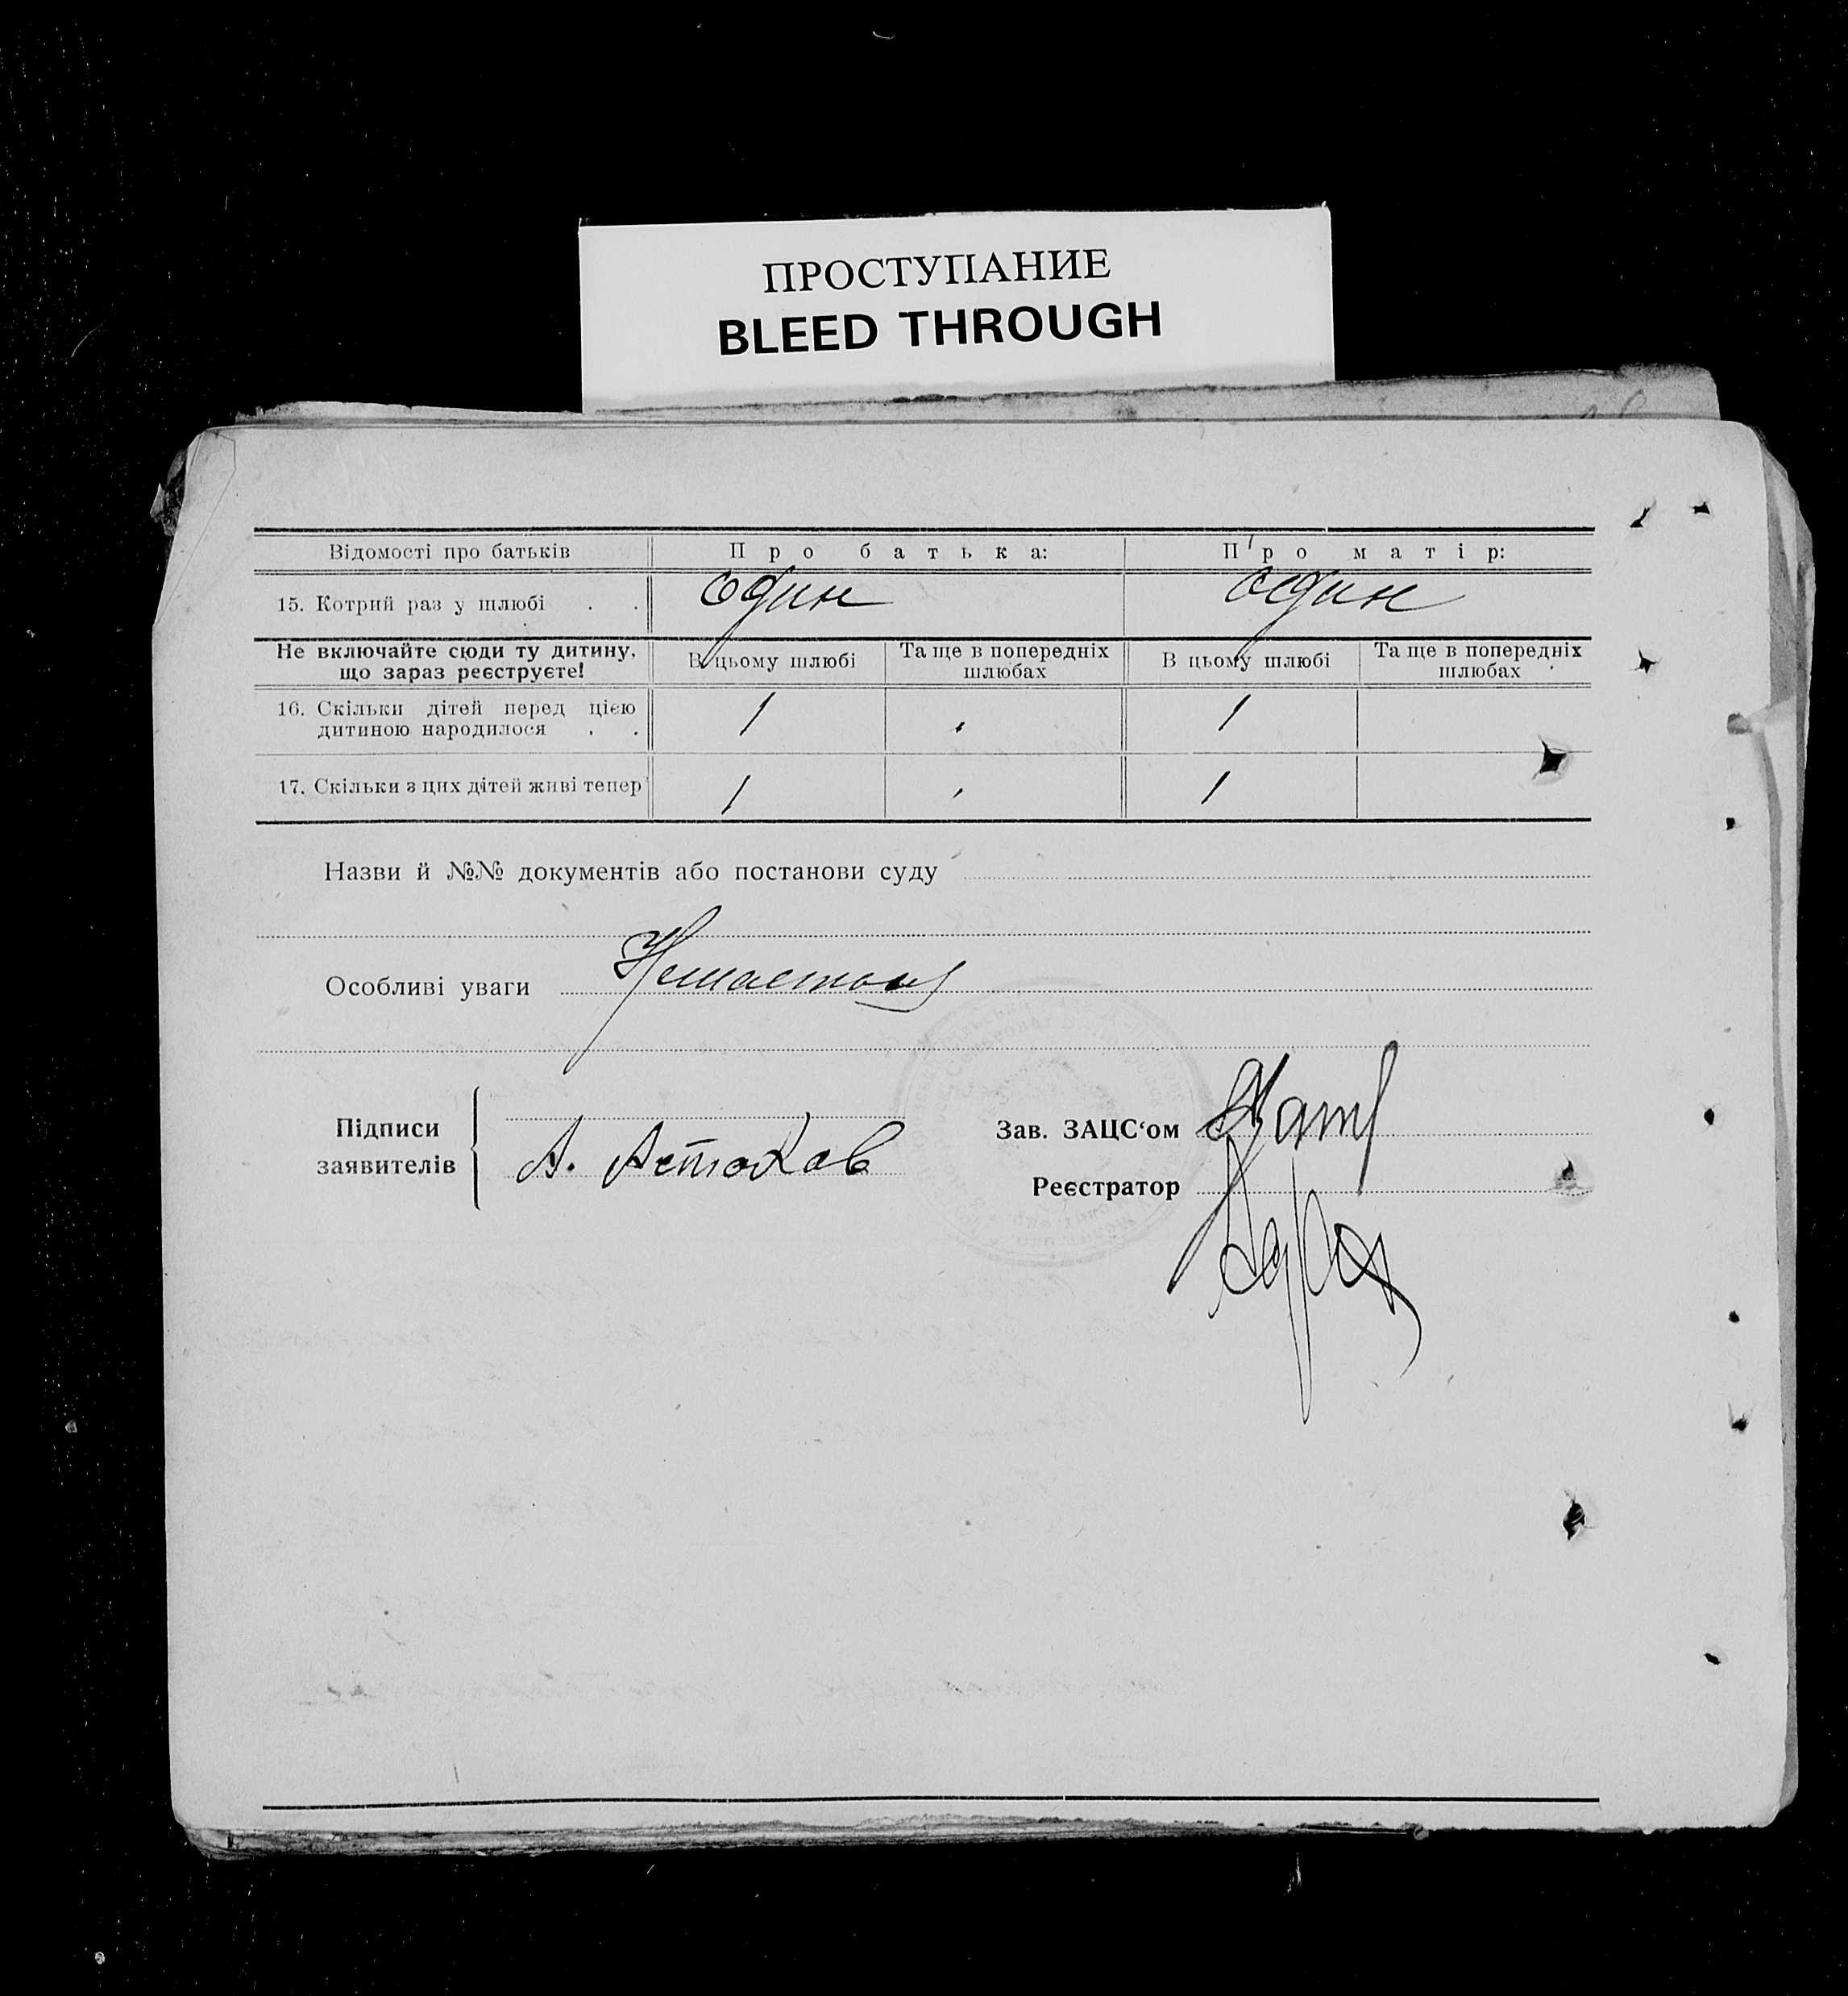 ПРОСТУПАНИЕ
BLEED THROUGH
Відомості про батьків Про батька: Про матір:
15. Котрий раз у шлюбі . . один один
Не включайте сюди ту дитину, що зараз реєструєте!
В цьому шлюбі Та ще в попередніх шлюбах В цьому шлюбі Та ще в попередніх шлюбах
16. Скільки дітей перед цією
дитиною народилося . . 1 1
17. Скільки з цих дітей живі тепер 1 1
Назви й №№ документів або постанови суду
Особливі уваги
Підписи
заявителів
А.
Зав. ЗАЦС‘ом
Реєстратор